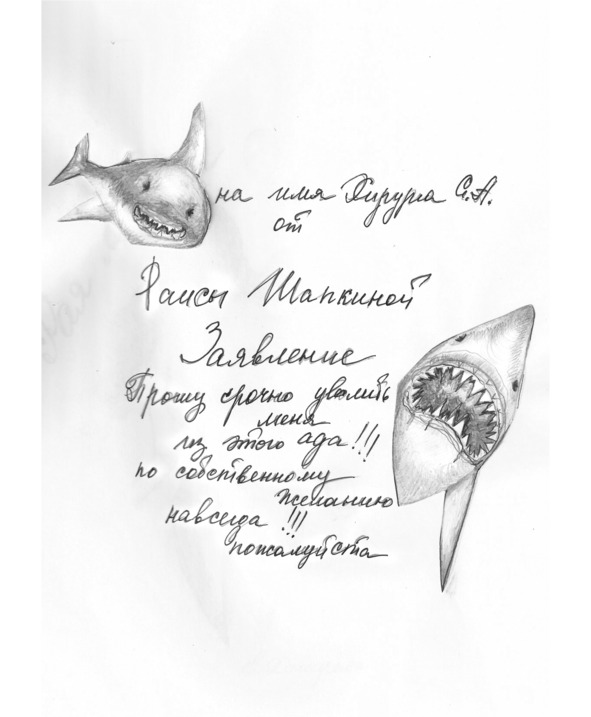 на имя Хирурга С.А.
от
Раисы Шапкиной
Заявление
Прошу срочно уволить
меня
из этого ада!!!
по собственному
желанию
навсегда!!!
пожалуйста